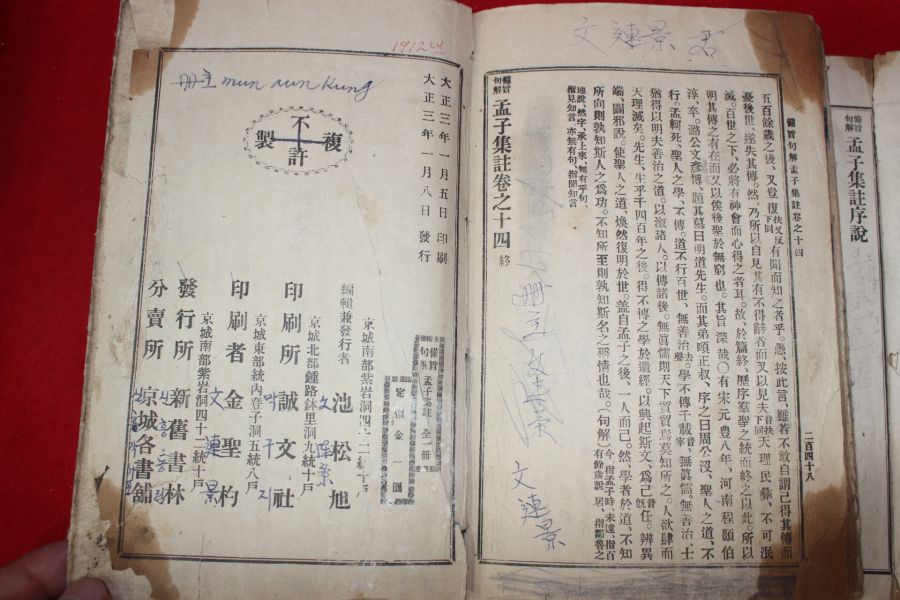 備旨句解 孟子集註序說
備旨句解孟子集註卷之十四 二百四十八
五百餘歲之後、又豈復扶又反下同有聞而知之者乎。愚、按此言、雖若不敢自謂已得其傳而
憂後世、遂失其傳。然、乃所以自見其有不得辭者而又以見夫音扶下同天理民彝、不可泯
滅。百世之下、必將有神會而心得之者耳。故、於篇終、歷序羣聖之統而終之以此。所以
明其傳之有在而又以俟後聖於無窮也。其旨深哉○有宋元豊八年、河南程顥伯
淳、卒。潞公文彦博、題其墓曰明道先生。而其弟頤正叔、序之曰周公沒、聖人之道、不
行。孟軻死、聖人之學、不傳。道不行百世、無善治。去聲學不傳千載、無眞儒。無善治、士
猶得以明夫善治之道。以淑諸人。以傳諸後。無眞儒則天下貿貿焉莫知所之。人欲肆而
天理滅矣。先生、生乎千四百年之後。得不傳之學於遺經。以興起斯文、爲己任。辨異
端、闢邪說。使聖人之道、煥然復明於世。盖自孟子之後、一人而已。然學者於道、不知
所向則孰知斯人之爲功。不知所至則孰知斯名之稱情也哉。(句解)
備旨句解 孟子集註卷之十四 終
文 連 景
文 連景
1912년
大正三年一月五日 印刷
大正三年一月八日 發行
冊主 mun aun Kung
不許複製
備旨句解 孟子集註 全一冊
定價金一圓
京城南部紫岩洞四二二統十戶
編輯兼發行者 池松旭
京城北部鍾路鉢里洞九統十戶
印刷所 誠文社
京城東部統內登子洞五統八戶
印刷者 金聖杓
文連景
京城南部紫岩洞四十一統十戶
發行所 新舊書林
分賣所 京城各書舖